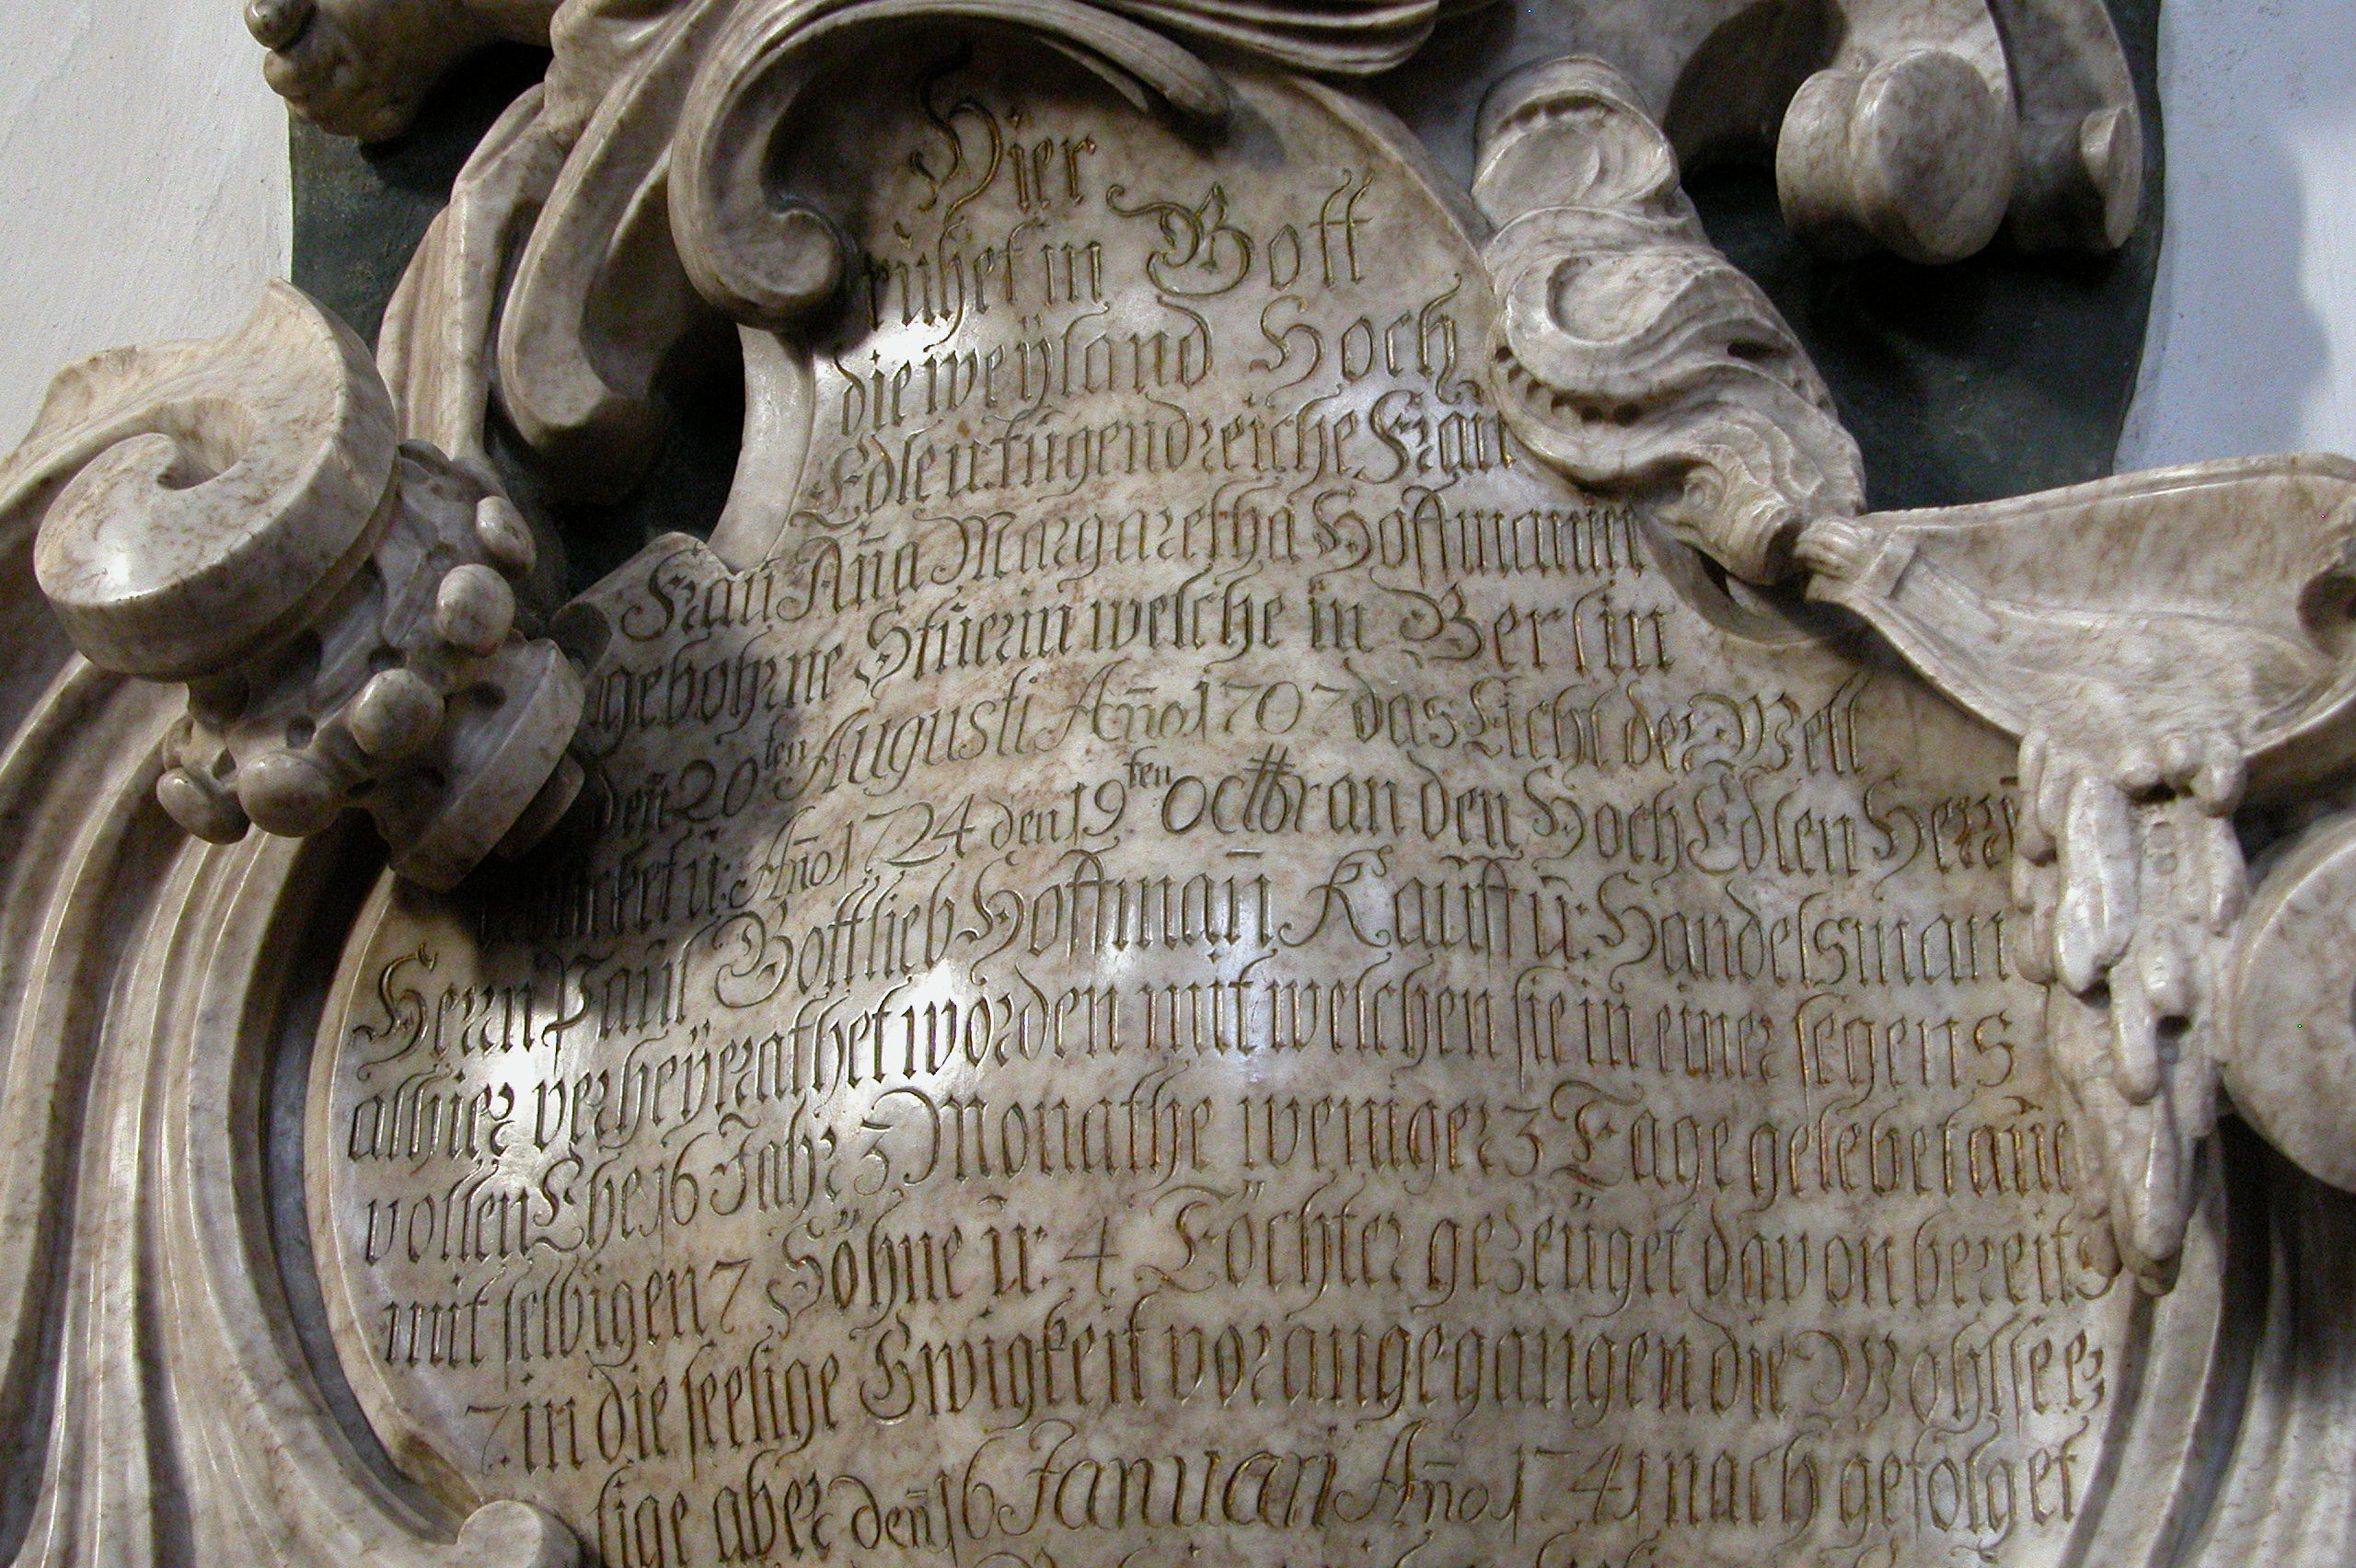 Hier
ruhet in Gott
die weÿland Hoch
Edle u: tugendreiche Frau
Frau Aña Margaretha Hoffmannin
gebohrne Stüerin welche in Berlin
deñ 20ten Augusti Año 1707 das Licht der Welt
u: Año 1724 den 19ten Octbr an den Hoch Edlen Herrn
Herrn Paul Gottlieb Hoffmañ Kauff u: Handelsman
alhier verheÿrathet worden mit welchen sie in einer segens
vollen Ehe 16 Jahr 3 Monathe weniger 3 Tage gelebet auch
mit selbigen 7 Söhne u: 4 Töchter gezeüget davon bereits
7 in die seelige Ewigkeit vorangegangen die Wohlsee
lige aber deñ 16 Januari Año 1741 nachgefolget